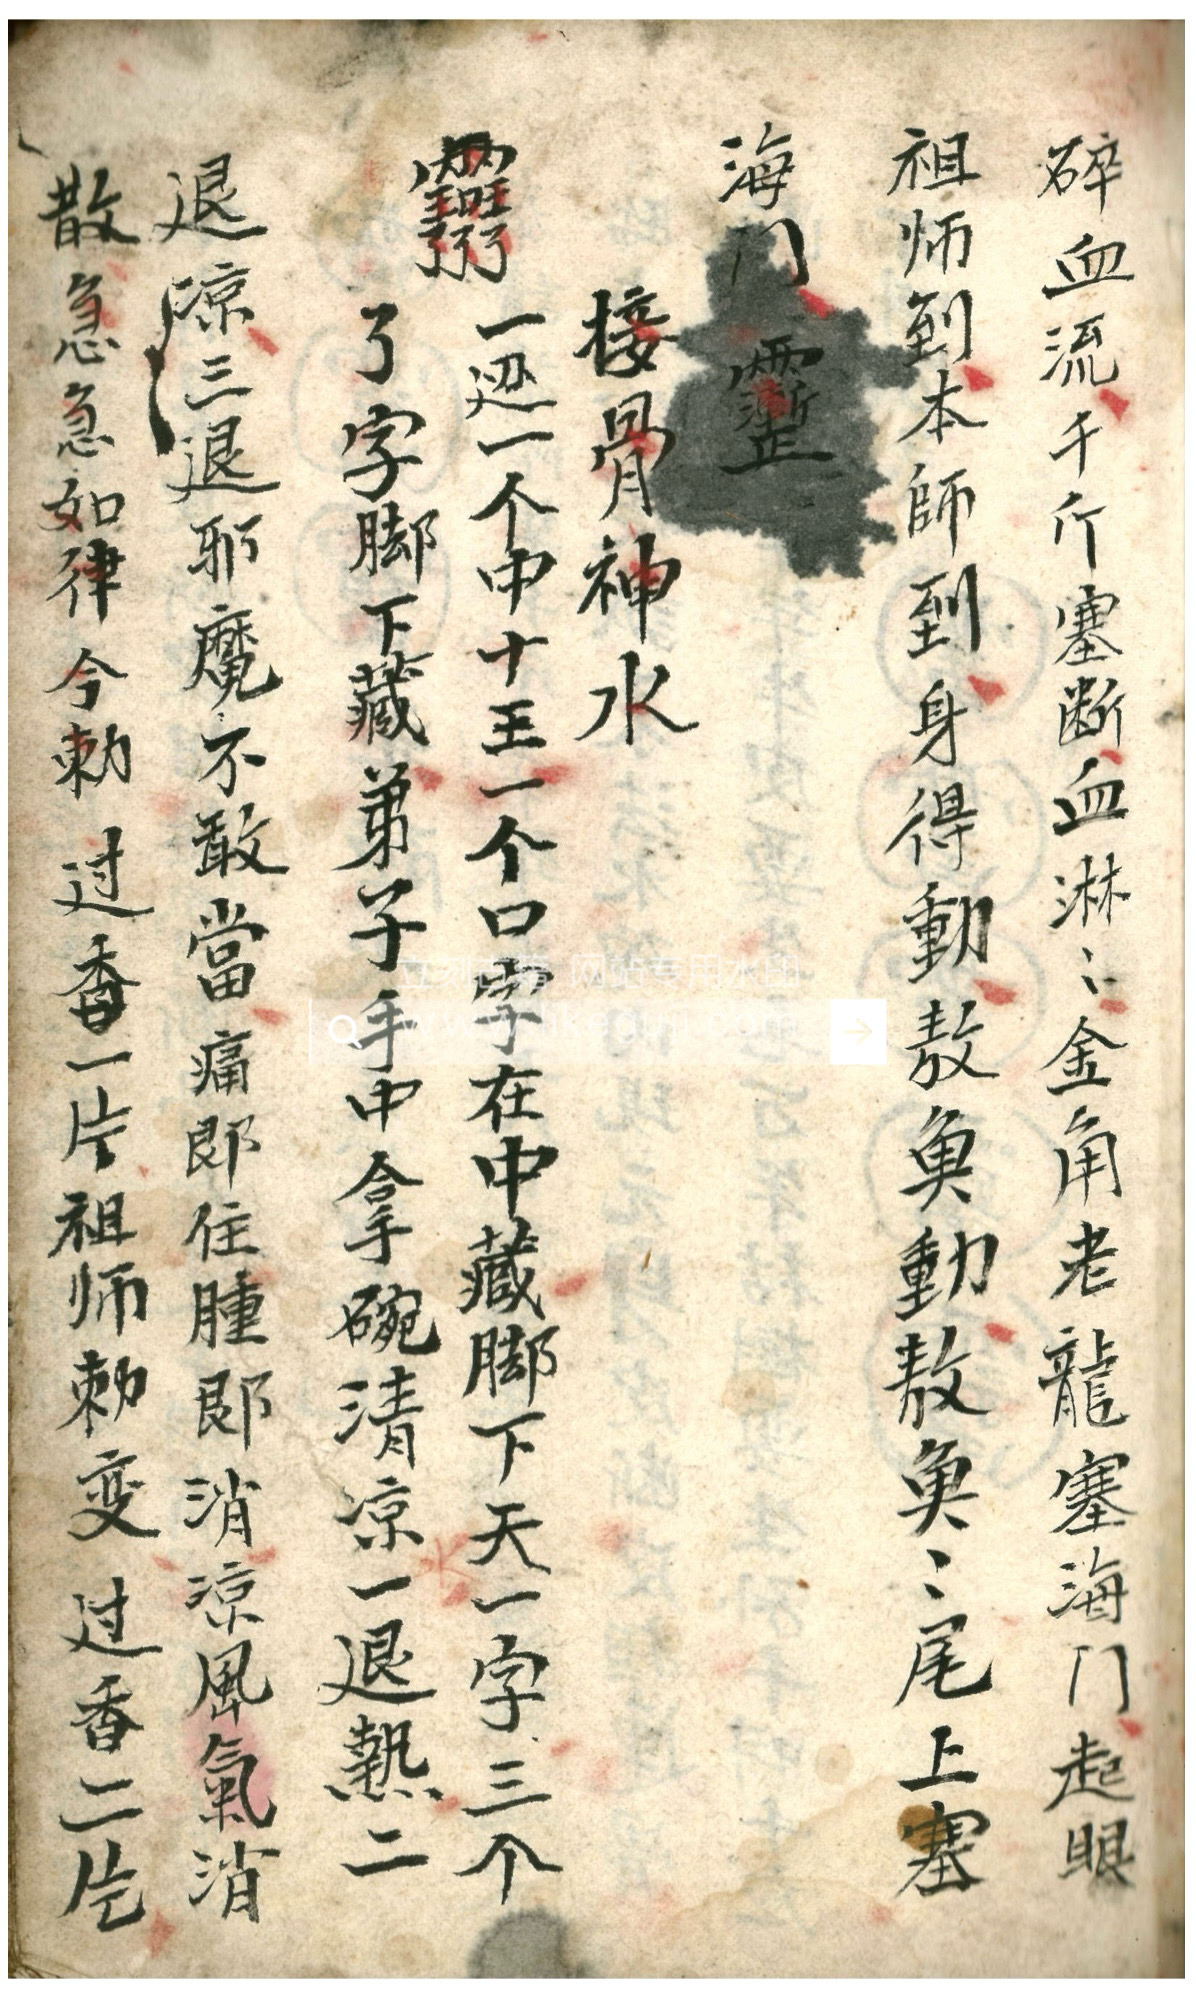 碎血流千斤塞断血淋〻金角老龍塞海门起眼
祖师到本師到身得動敖魚動敖魚〻尾上塞
海门
接骨神水
一迎一个中十王一个口字在中藏脚下天一字三个
了字脚下藏弟子手中拿碗清凉一退熱二
退凉三退邪魔不敢當痛郎住腫郎消凉風氣消
散急急如律令勅过香一片祖师勅变过香二片